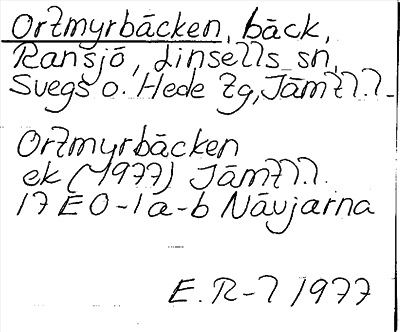 Ortmyrbäcken, bäck,
Ransjö, Linsells sn,
Svegs o. Hede tg, Jämtl.l.
Ortmyrbäcken
ek (1977) Jämtl.l.
17 E 0-1 a-b Nävjarna
E. R-l 1977